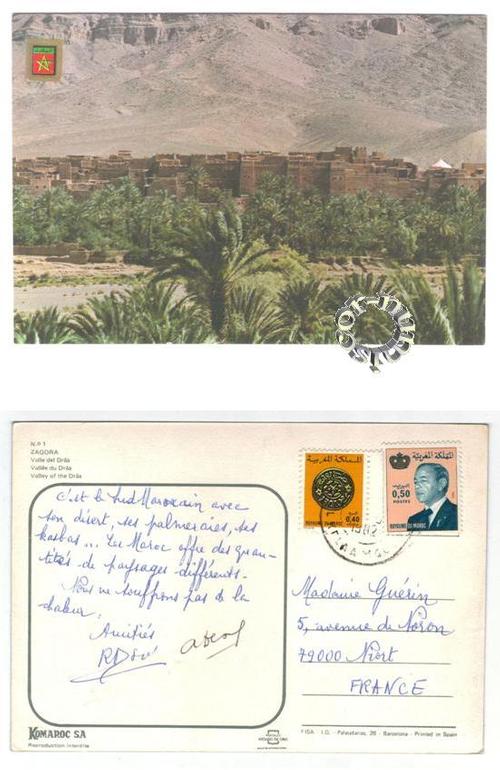 N.º 1
ZAGORA
Valle del Drâa
Vallée du Drâa
Valley of the Drâa
C'est le Sud Marocain avec
son désert, ses palmeraies, ses
kasbas... Le Maroc offre des quan-
tités de paysages différents.
Nous ne souffrons pas de la
chaleur.
Amitiés
المملكة المغربية
0,40
ROYAUME DU MAROC
المملكة المغربية
0,50
POSTES
ROYAUME DU MAROC
Madame Guérin
5, avenue de
79000 Niort
FRANCE
KOMAROC SA
Reproduction interdite
FISA - I.G. - Palaudarias, 26 - Barcelona - Printed in Spain